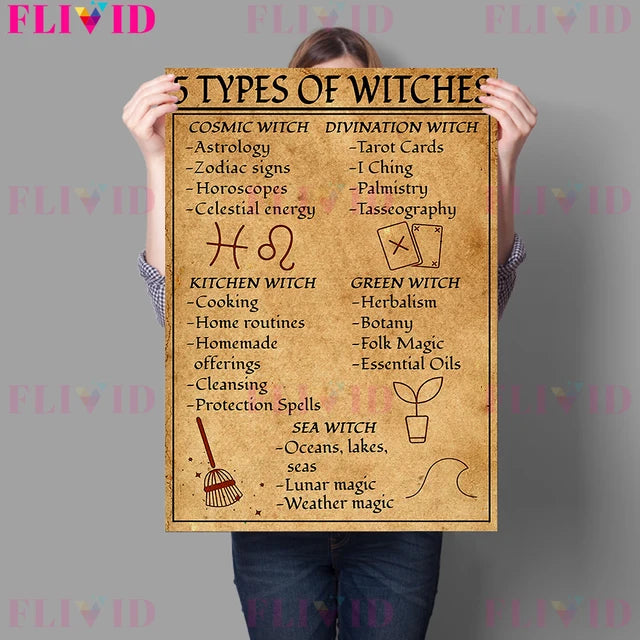 FLIVID
5 TYPES OF WITCHES
COSMIC WITCH
-Astrology
-Zodiac signs
-Horoscopes
-Celestial energy
DIVINATION WITCH
-Tarot Cards
-I Ching
-Palmistry
-Tasseography
KITCHEN WITCH
-Cooking
-Home routines
-Homemade
offerings
-Cleansing
-Protection Spells
GREEN WITCH
-Herbalism
-Botany
-Folk Magic
-Essential Oils
SEA WITCH
-Oceans, lakes,
seas
-Lunar magic
-Weather magic
FLIVID
FLIVID
FLIVID
FLIVID
FLIVID
FLIVID
FLIVID
FLIVID
FLIVID
FLIVID
FLIVID